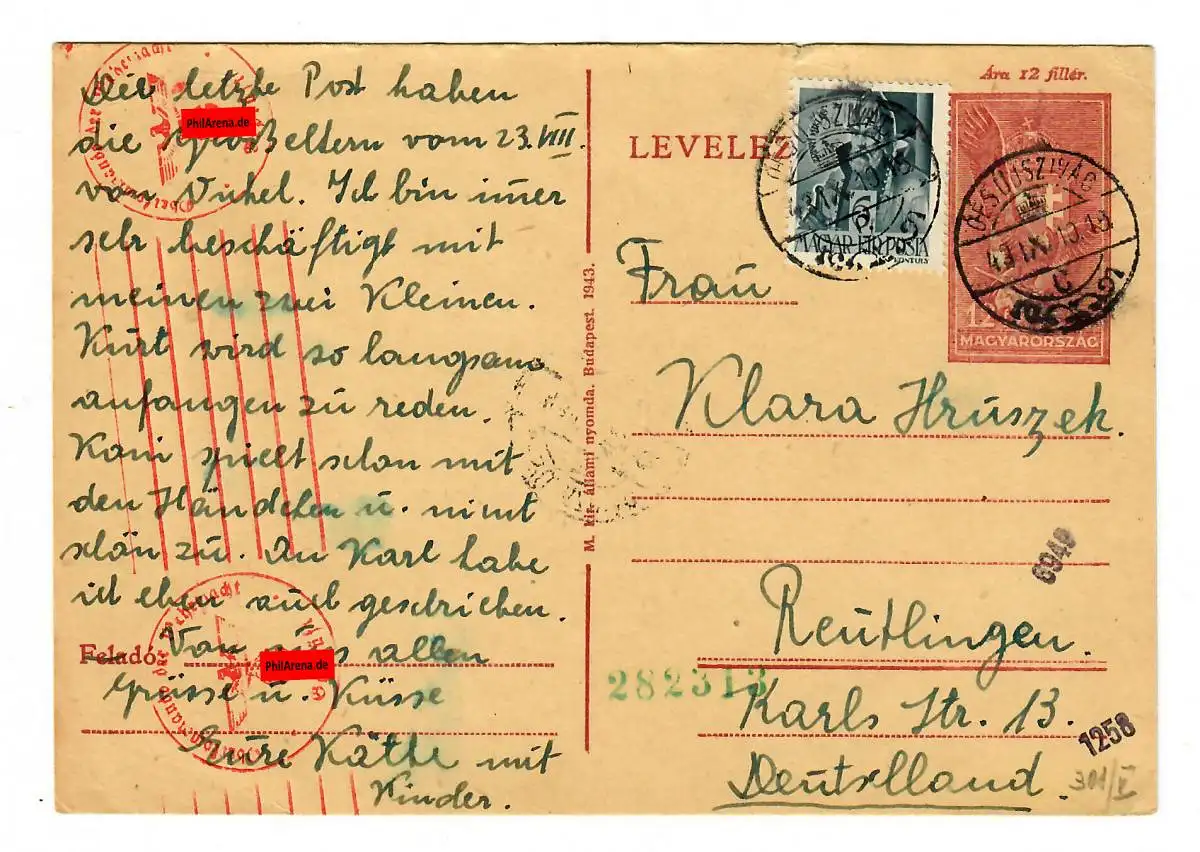 Die letzte Post haben
die Großeltern vom 23. VIII.
von Onkel. Ich bin imer
sehr beschäftigt mit
meinen zwei Kleinen.
Kurt wird so langsam
anfangen zu reden.
spielt schon mit
den Händchen u. nimt
schön zu. An Karl habe
ich eben auch geschrieben.
Feladó: Von uns allen
Grüsse u. Küsse
Eure Käthe mit
Kinder.
PhilArena.de
PhilArena.de
M. kir. állami nyomda. Budapest. 1943.
Ára 12 fillér.
LEVELEZ
MAGYAR KIR. POSTA
BUDAPEST
12
MAGYARORSZÁG
Frau
Klara Hruszek.
Reutlingen.
Karls Str. 13.
Deutschland.
282313
6940
1258
301/V